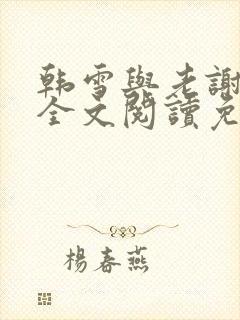 韩雪與老謝
全文閱讀免
楊春燕